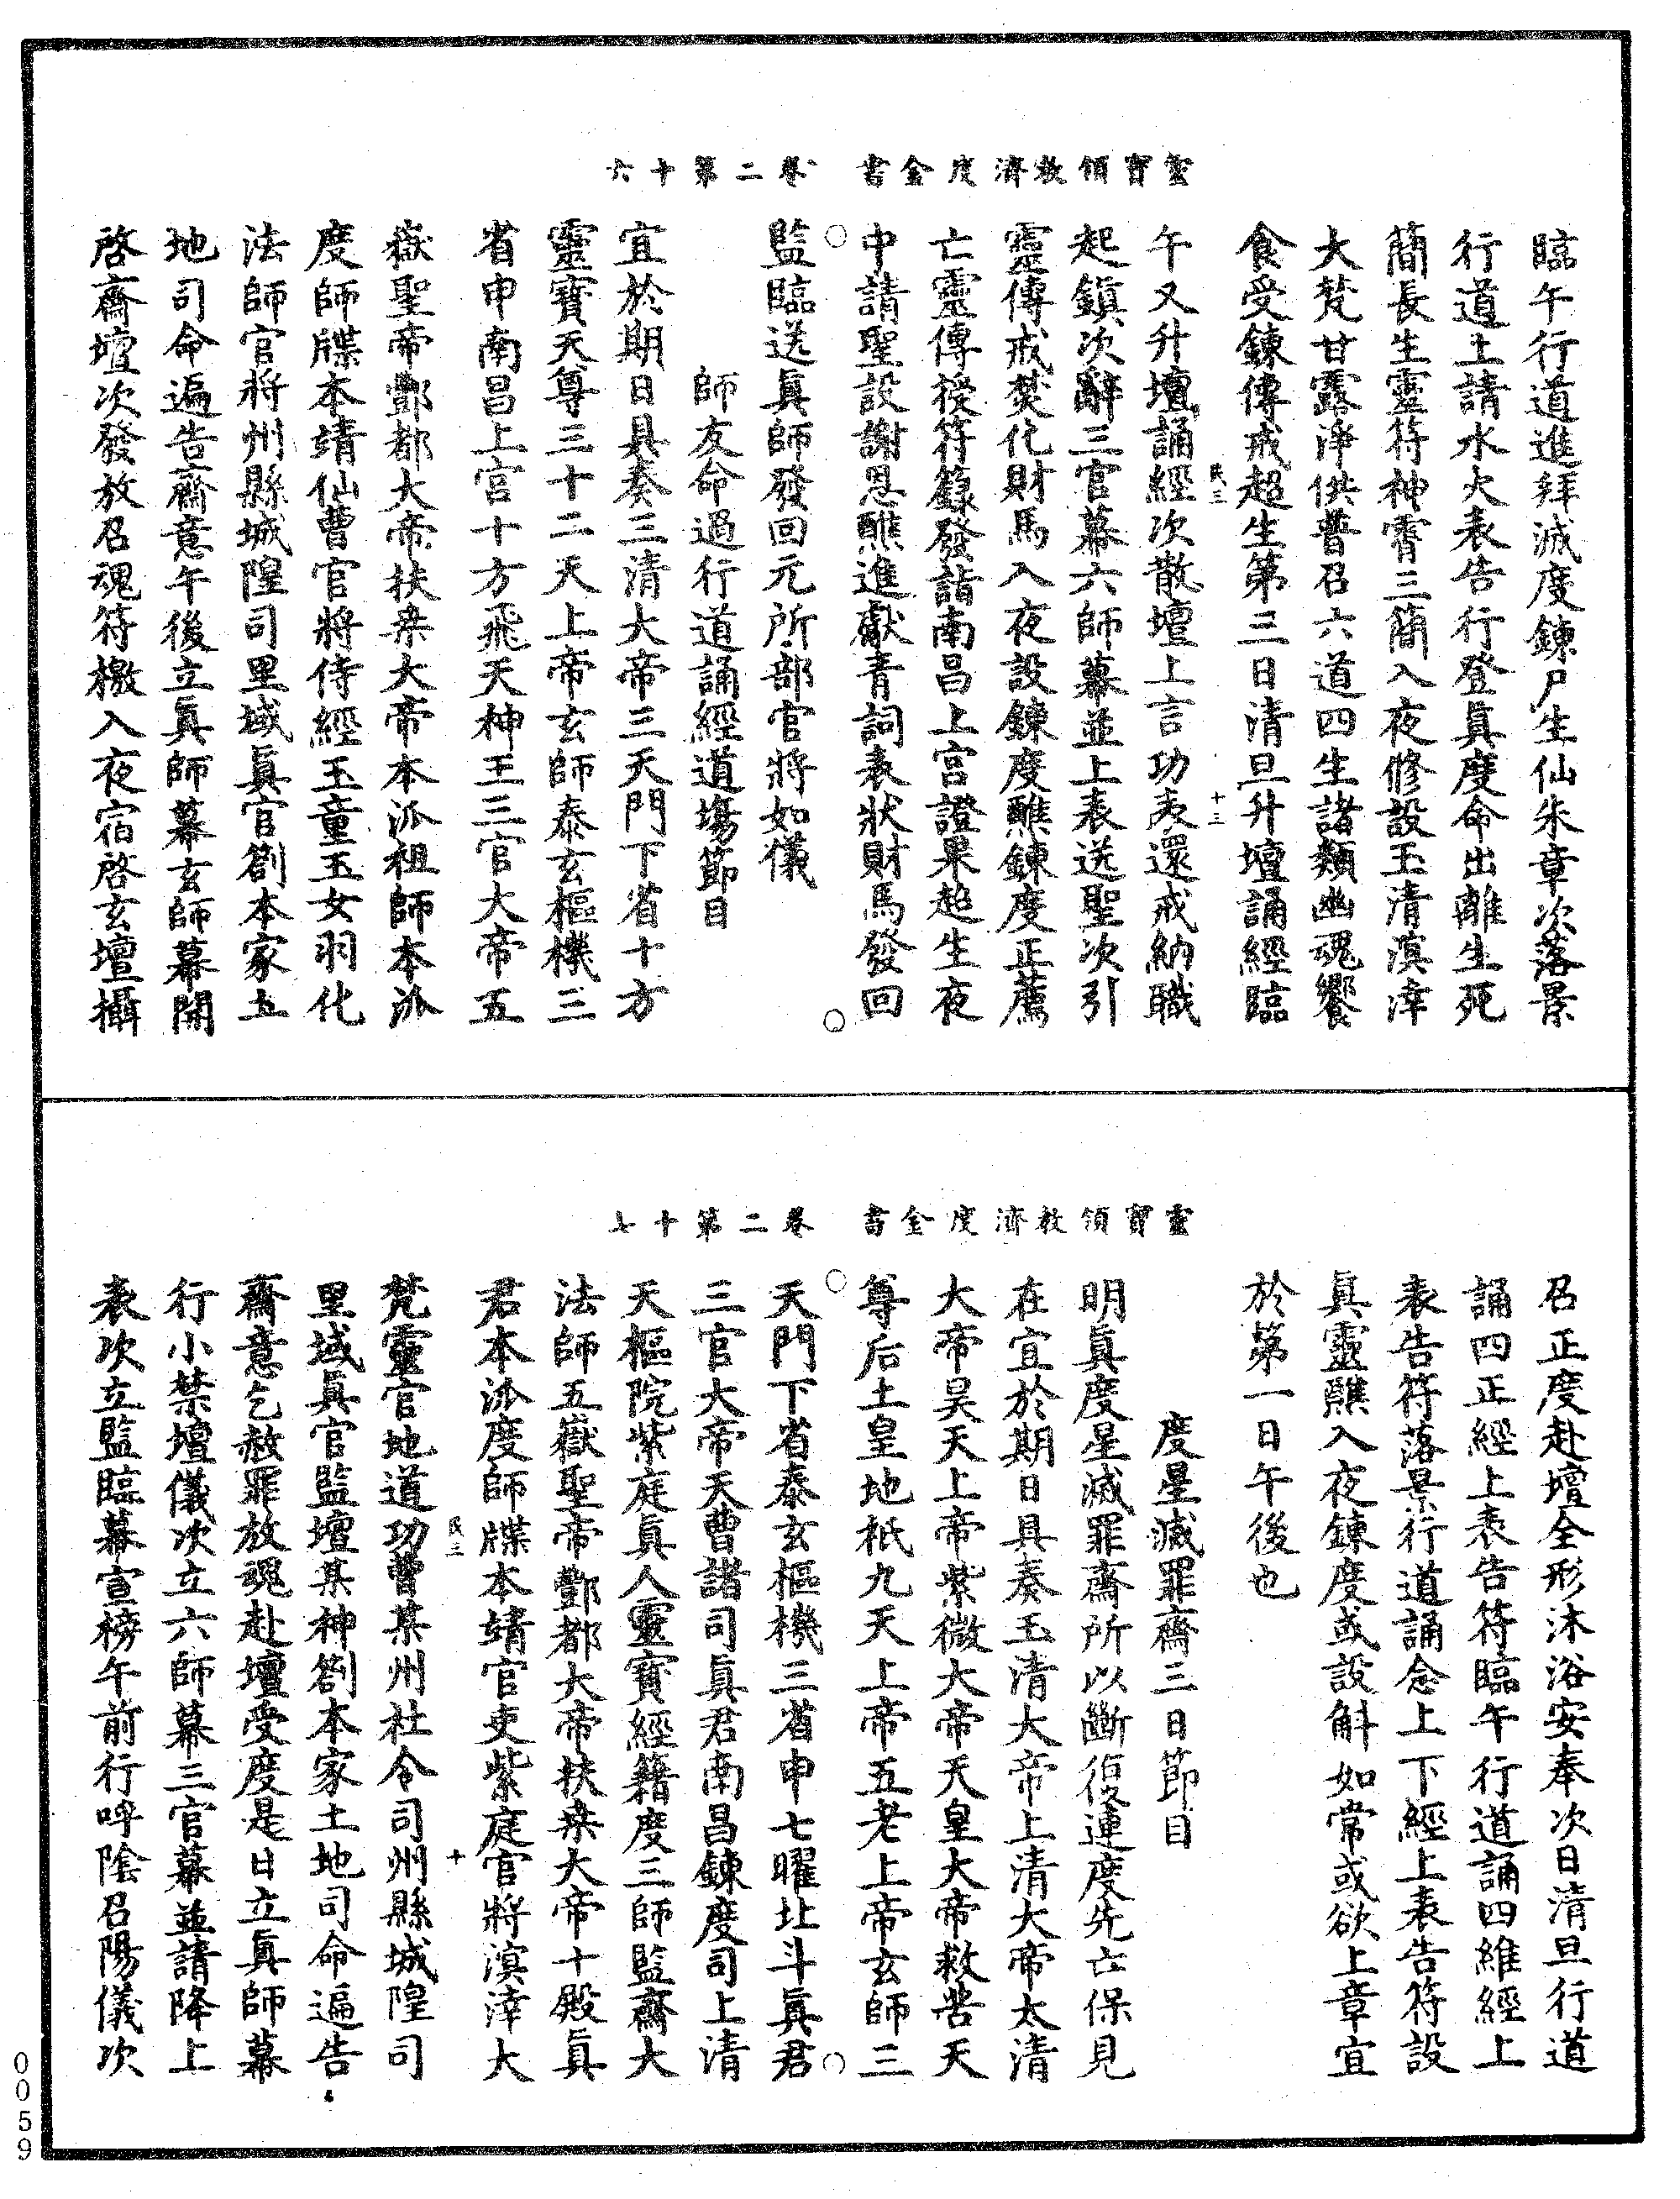 靈寶領教濟度金書　卷二第十六
臨午行道進拜滅度鍊尸生仙朱章次落景
行道上請水火表告行登眞度命出離生死
簡長生靈符神霄三簡入夜修設玉清溟涬
大梵甘露淨供普召六道四生諸類幽魂饗
食受鍊傳戒超生第三日清旦升壇誦經臨
民三　十三
午又升壇誦經次散壇上言功表還戒納職
起鎮次辭三官幕六師幕並上表送聖次引
靈傳戒焚化財馬入夜設鍊度醮鍊度正薦
亡靈傳授符籙發詣南昌上宮證果超生夜
中請聖設謝恩醮進獻青詞表狀財馬發回
監臨送眞師發回元所部官將如儀
師友命過行道誦經道場節目
宜於期日具奏三清大帝三天門下省十方
靈寶天尊三十二天上帝玄師泰玄樞機三
省申南昌上宮十方飛天神王三官大帝五
嶽聖帝酆都大帝扶桒大帝本派祖師本派
度師牒本靖仙曹官將侍經玉童玉女羽化
法師官將州縣城隍司里域眞官劄本家五
地司命遍告齋意午後立眞師幕玄師幕開
啓齋壇次發放召魂符檄入夜宿啓玄壇攝
靈寶領教濟度金書　卷二第十七
召正度赴壇全形沐浴安奉次日清旦行道
誦四正經上表告符臨午行道誦四維經上
表告符落景行道誦念上下經上表告符設
眞靈醮入夜鍊度或設斛如常或欲上章宜
於第一日午後也
度星滅罪齋三日節目
明眞度星滅罪齋所以斷復連度先亡保見
在宜於期日具奏玉清大帝上清大帝太清
大帝昊天上帝紫微大帝天皇大帝救苦天
尊后土皇地祇九天上帝五老上帝玄師三
天門下省泰玄樞機三省申七曜北斗眞君
三官大帝天曹諸司眞君南昌鍊度司上清
天樞院紫庭眞人靈寶經籍度三師監齋大
法師五嶽聖帝酆都大帝扶桒大帝十殿眞
君本派度師牒本靖官吏紫庭官將溟涬大
民三　十
梵靈官地道功曹某州社令司州縣城隍司
里域眞官監壇某神劄本家土地司命遍告
齋意乞赦罪放魂赴壇受度是日立眞師幕
行小禁壇儀次立六師幕三官幕並請降上
表次立監臨幕宣榜午前行呼陰召陽儀次
0059